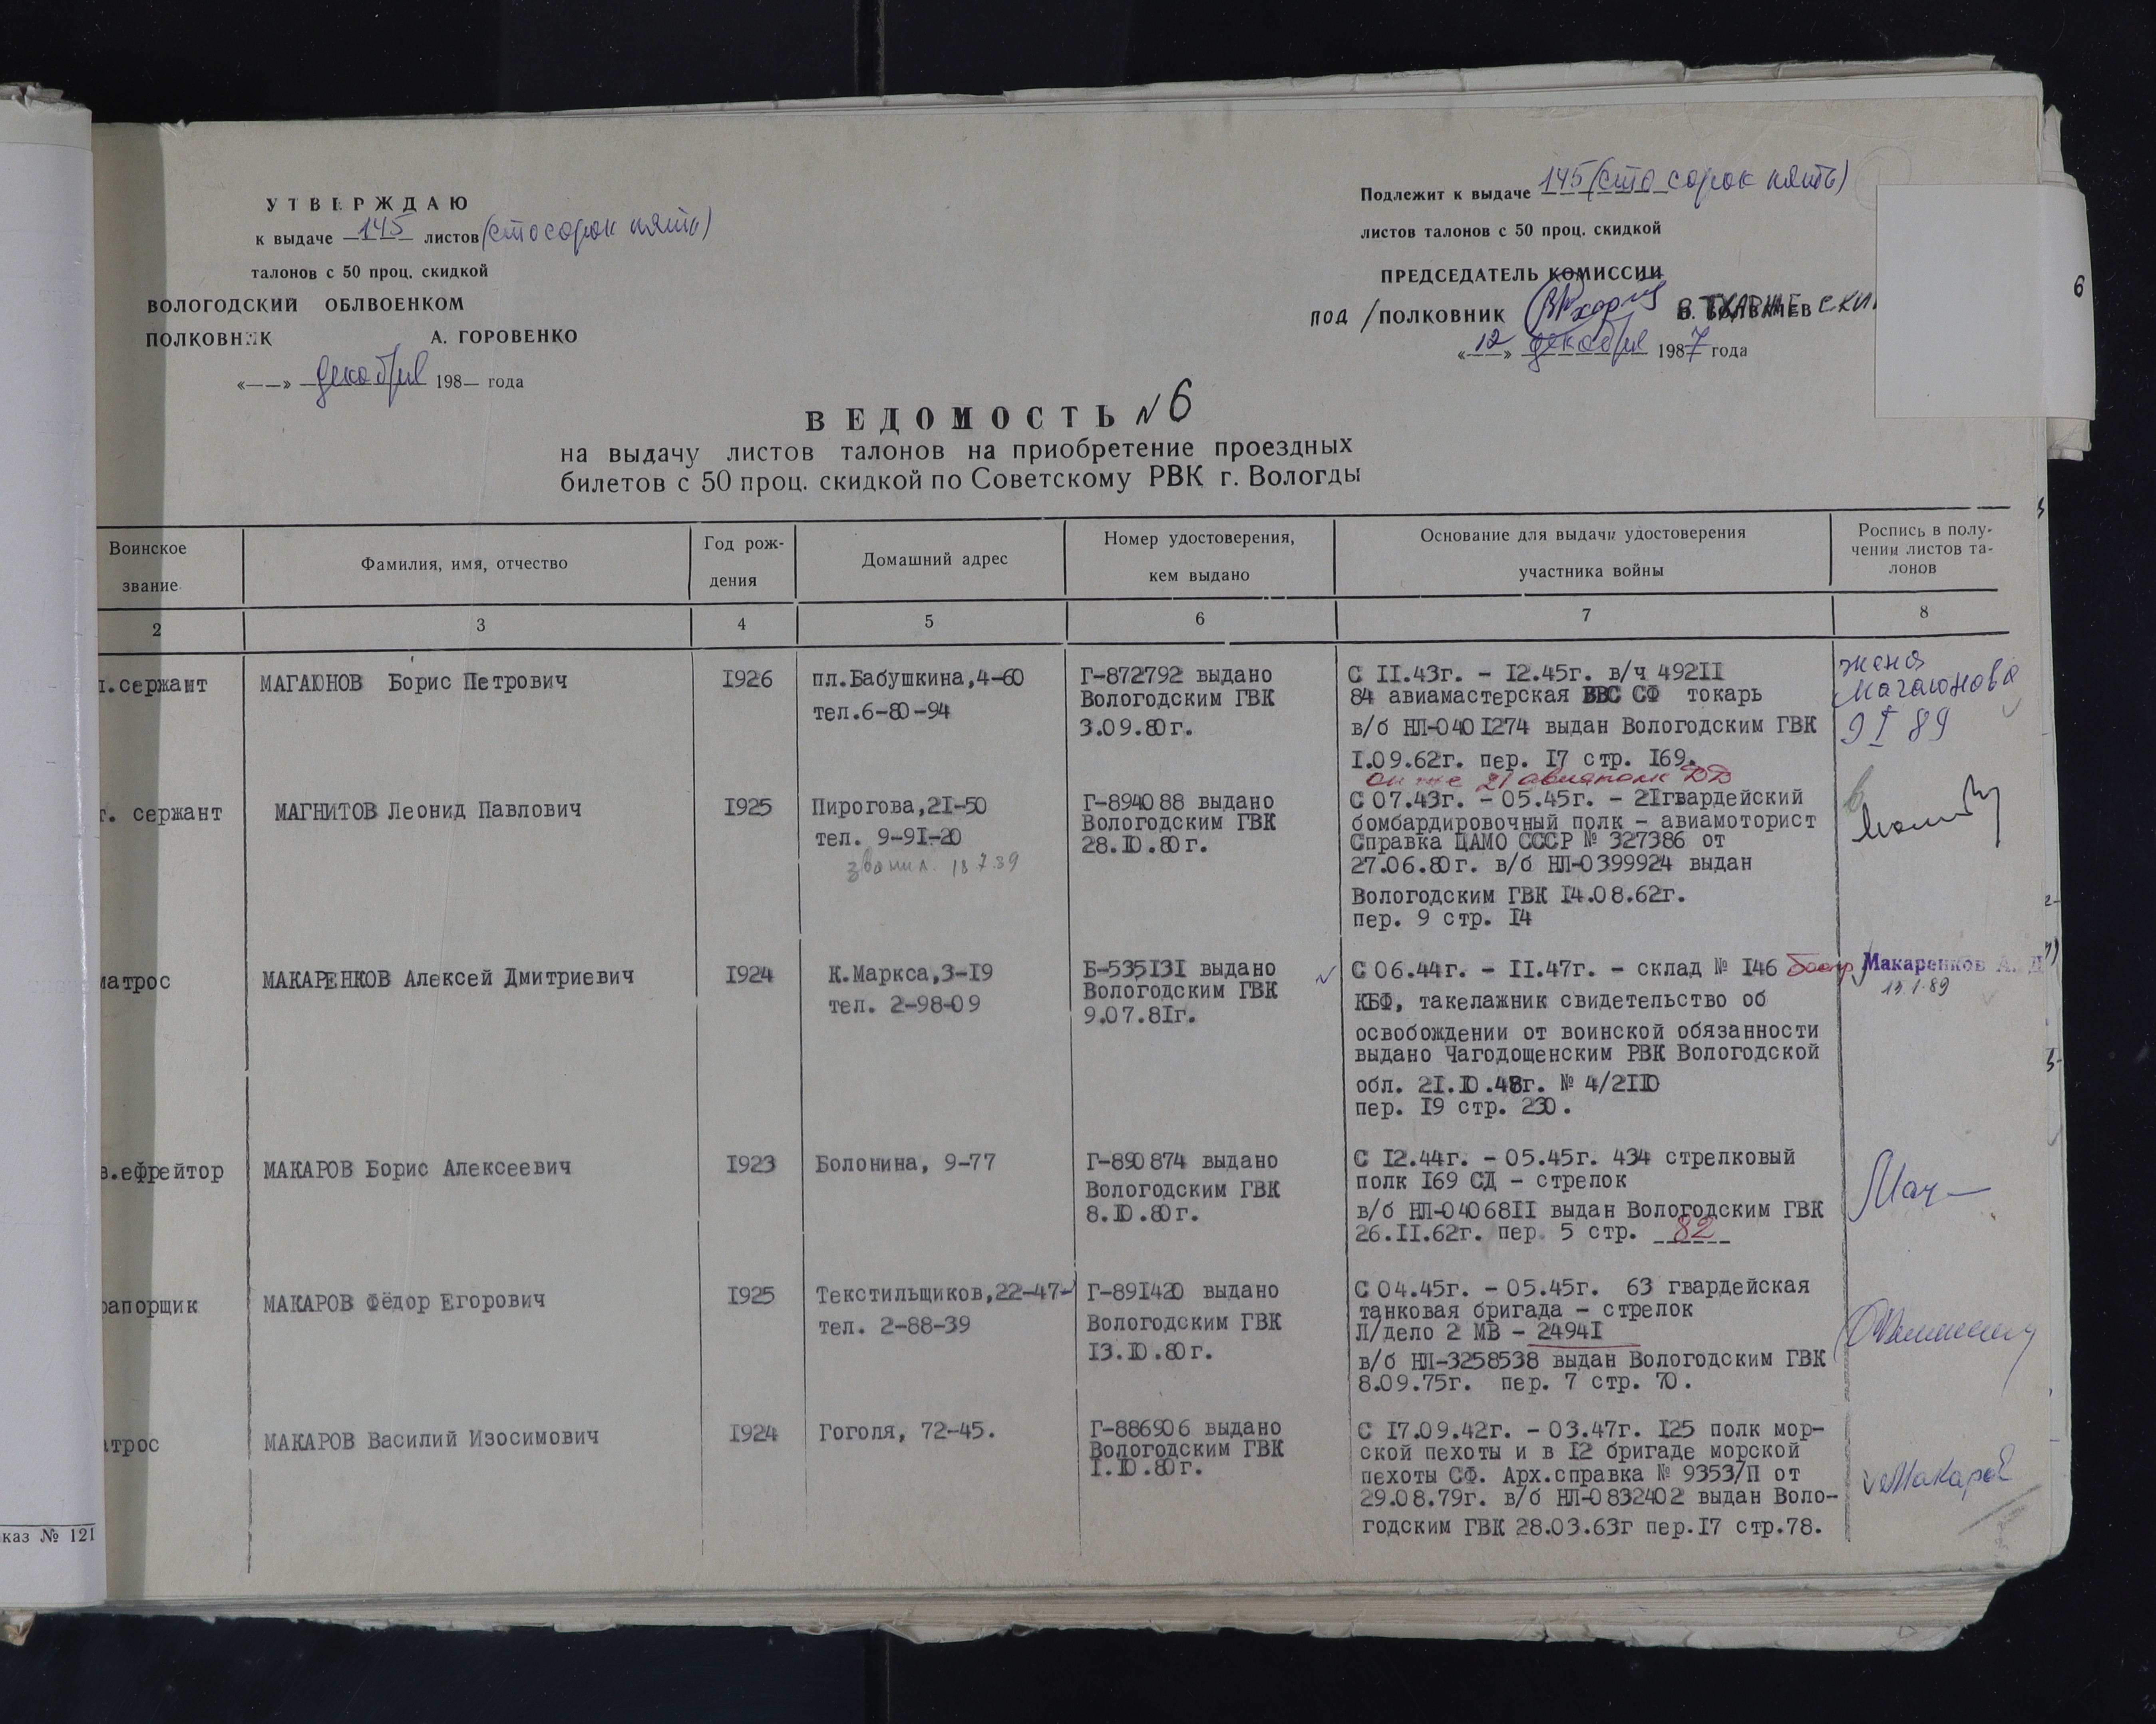 УТВЕРЖДАЮ
к выдаче 145 листов (сто сорок пять)
талонов с 50 проц. скидкой
ВОЛОГОДСКИЙ ОБЛВОЕНКОМ
ПОЛКОВНИК А. ГОРОВЕНКО
«——» декабря 198— года
Подлежит к выдаче 145 (сто сорок пять)
листов талонов с 50 проц. скидкой
ПРЕДСЕДАТЕЛЬ КОМИССИИ
ПОД/ПОЛКОВНИК
«12» декабря 1987 года
6
ВЕДОМОСТЬ №6
на выдачу листов талонов на приобретение проездных
билетов с 50 проц. скидкой по Советскому РВК г. Вологды
Воинское
звание
Фамилия, имя, отчество
Год рож-
дения
Домашний адрес
Номер удостоверения,
кем выдано
Основание для выдачи удостоверения
участника войны
Роспись в полу-
чении листов та-
лонов
2 3 4 5 6 7 8
л.сержант
МАГАЮНОВ Борис Петрович
I926
пл.Бабушкина,4-60
тел.6-80-94
Г-872792 выдано
Вологодским ГВК
3.09.80г.
С II.43г. - I2.45г. в/ч 492II
84 авиамастерская ВВС СФ токарь
в/б НЛ-040I274 выдан Вологодским ГВК
I.09.62г. пер. I7 стр. I69.
жена
Магаюнова
9 I 89
т. сержант
МАГНИТОВ Леонид Павлович
I925
Пирогова,2I-50
тел. 9-9I-20
звонил. 18.7.89
Г-894088 выдано
Вологодским ГВК
28.I0.80г.
он же 21 авиаполк ДД
С 07.43г. - 05.45г. - 2Iгвардейский
бомбардировочный полк - авиамоторист
Справка ЦАМО СССР № 327386 от
27.06.80г. в/б НЛ-0399924 выдан
Вологодским ГВК I4.08.62г.
пер. 9 стр. I4
матрос
МАКАРЕНКОВ Алексей Дмитриевич
I924
К.Маркса,3-I9
тел. 2-98-09
Б-535I3I выдано
Вологодским ГВК
9.07.8Iг.
С 06.44г. - II.47г. - склад № I46
КБФ, такелажник свидетельство об
освобождении от воинской обязанности
выдано Чагодощенским РВК Вологодской
обл. 2I.I0.48г. № 4/2II0
пер. I9 стр. 230.
Макаренков А. Д
13.1.89
в.ефрейтор
МАКАРОВ Борис Алексеевич
I923
Болонина, 9-77
Г-890874 выдано
Вологодским ГВК
8.I0.80г.
С I2.44г. - 05.45г. 434 стрелковый
полк I69 СД - стрелок
в/б НЛ-04068II выдан Вологодским ГВК
26.II.62г. пер. 5 стр. 82
рапорщик
МАКАРОВ Фёдор Егорович
I925
Текстильщиков,22-47-
тел. 2-88-39
Г-89I420 выдано
Вологодским ГВК
I3.I0.80г.
С 04.45г. - 05.45г. 63 гвардейская
танковая бригада - стрелок
Л/дело 2 МВ - 2494I
в/б НЛ-3258538 выдан Вологодским ГВК
8.09.75г. пер. 7 стр. 70.
атрос
МАКАРОВ Василий Изосимович
I924
Гоголя, 72-45.
Г-886906 выдано
Вологодским ГВК
I.I0.80г.
С I7.09.42г. - 03.47г. I25 полк мор-
ской пехоты и в I2 бригаде морской
пехоты СФ. Арх.справка № 9353/П от
29.08.79г. в/б НЛ-0832402 выдан Воло-
годским ГВК 28.03.63г пер.I7 стр.78.
Макаров
каз № 121